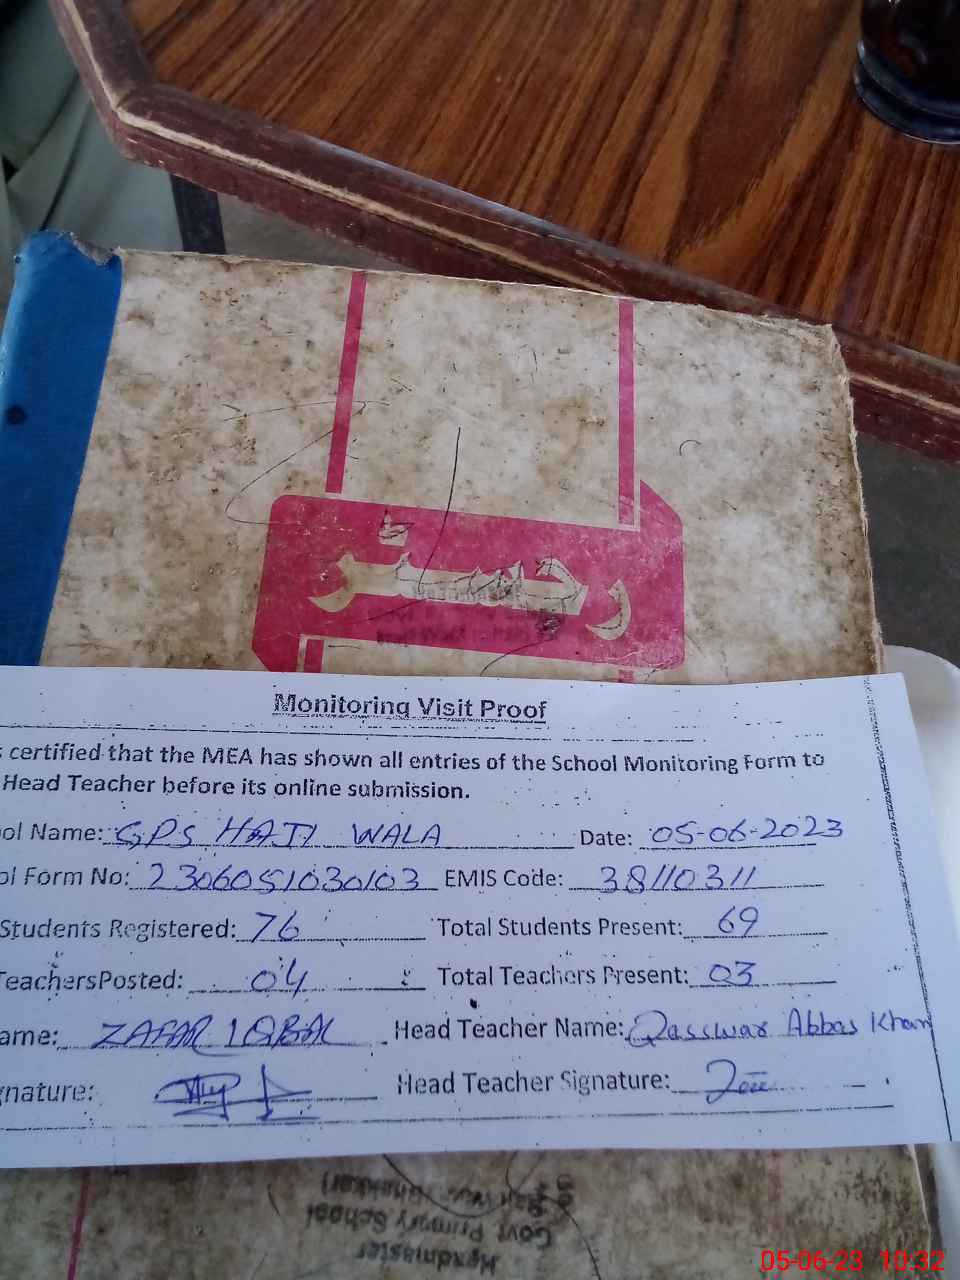 رجسٹر
Monitoring Visit Proof
s certified that the MEA has shown all entries of the School Monitoring Form to
Head Teacher before its online submission.
ol Name: GPS HAJI WALA Date: 05-06-2023
ol Form No: 2306051030103 EMIS Code: 38110311
Students Registered: 76 Total Students Present: 69
TeachersPosted: 04 Total Teachers Present: 03
ame: ZAFAR IQBAL Head Teacher Name: Qasswar Abbas Khan
gnature: Head Teacher Signature:
Headmaster
Govt Primary School
05-06-23 10:32